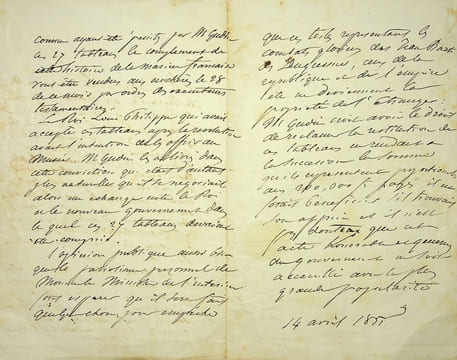 comme ayant été peints par M Gudin
ces 27 tableaux le complement de
cette histoire de la Marine française
vont être vendus aux enchères le 28
de ce mois par ordre des exécuteurs
testamentaires.
Le Roi Louis Philippe qui avait
accepté ces tableaux après la revolution
avait l'intention de les offrir au
Musée. M Gudin les a livrés dans
cette conviction qui était d'autant
plus naturelle qu'il se négociait
alors un échange entre le Roi
et le nouveau gouvernement dans
lequel ces 27 tableaux devaient
être compris.
L'opinion publique aussi bien
que le patriotisme personnel de
Monsieur le Ministre de l'intérieur
font esperer qu'il sera fait
quelque chose pour empêcher
que ces toiles representant les
combats glorieux des Jean Bart
des Duquesne, ceux de la
republique et de l'empire
ne deviennent la
propriété de l'Etranger.
M Gudin croit avoir le droit
de reclamer la restitution de
ces tableaux en rendant a
la succession la somme
qu'ils representent
des payés il en
ferait beneficier
son appui et il n'est
pas douteux que cet
acte honorable et genereux
du gouvernement ne soit
accueilli avec la plus
grande popularité
14 avril